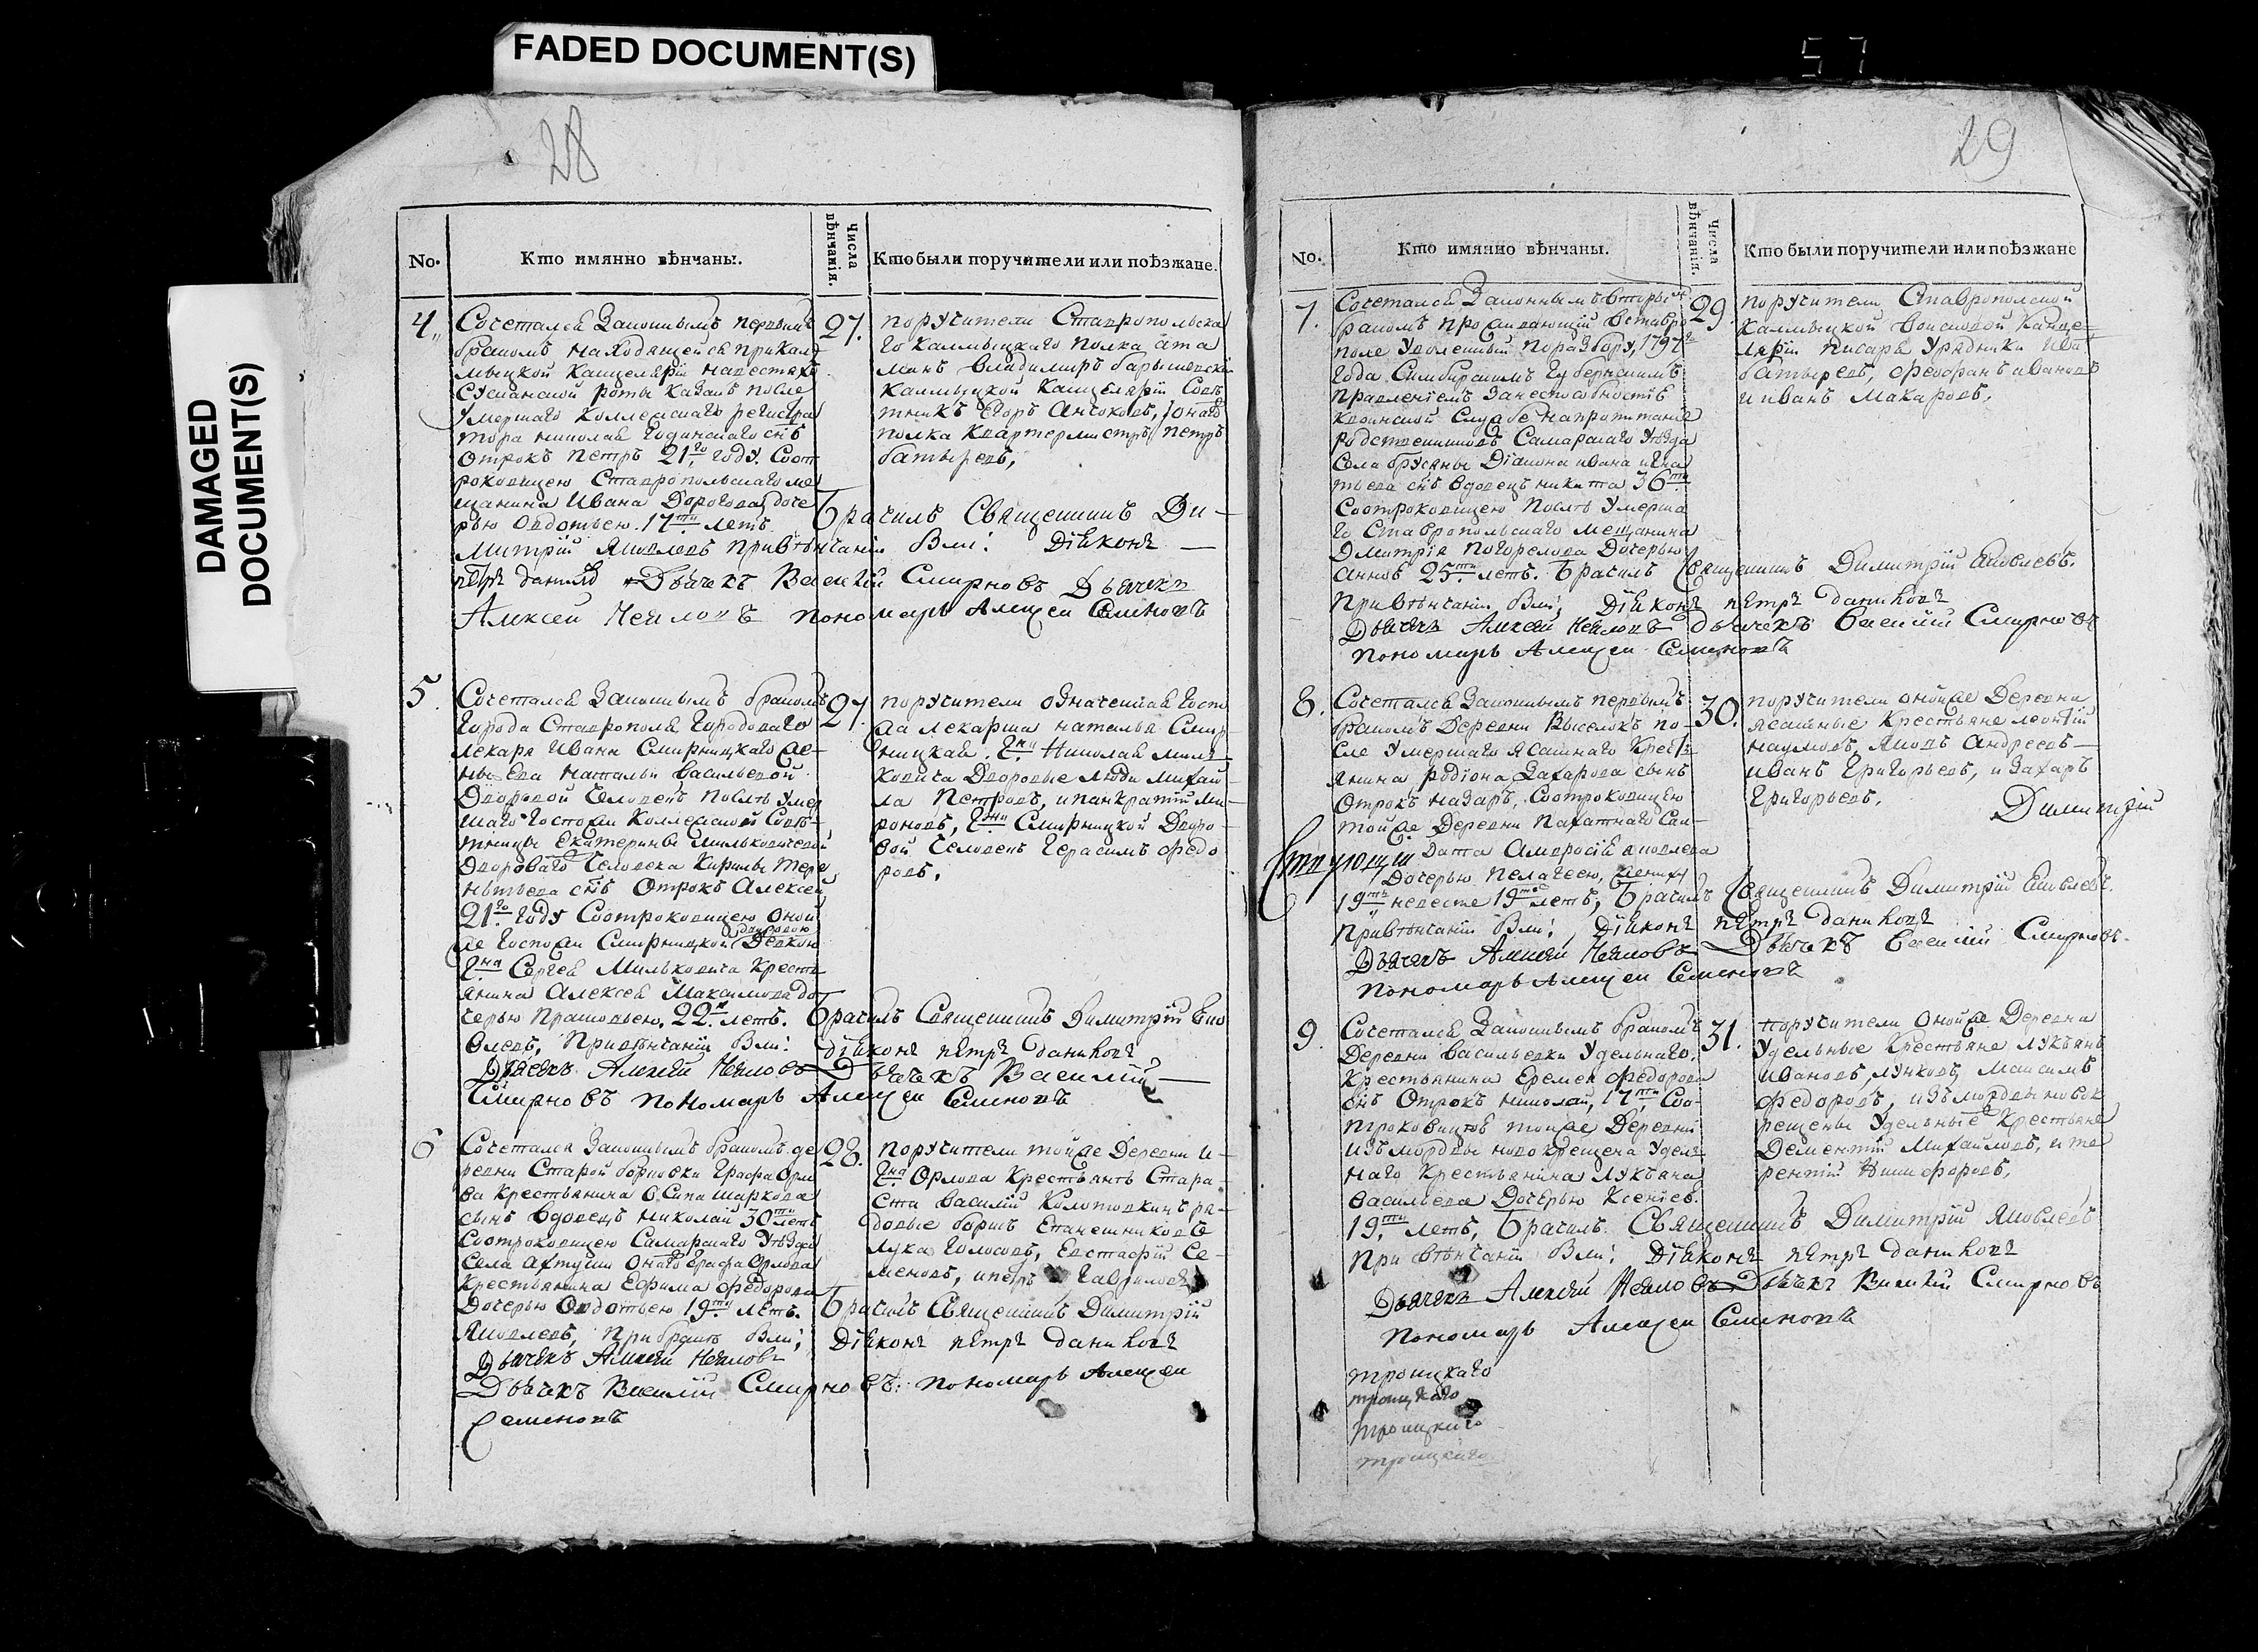 FADED DOCUMENT(S)
DAMAGED
DOCUMENT(S)
57
28
No.
Кто имянно вѣнчаны.
Числа
вѣнчанія.
Кто были поручители или поѣзжане.
4.
Сочетался Законнымъ первымъ
бракомъ находящейся при Кал
мыцкой Канцеляріи
роты после
умершаго Коллежскаго регистра
тора николая снъ
Отрокъ петръ 21го году. Соот
роковицею Ставропольскаго ме
щанина Ивана Дорогова доче
рью Овдотьею. 17ти летъ.
27.
поручители Ставропольска
го Калмыцкаго полка ата
манъ владимиръ
Калмыцкой Канцеляріи Сове
тникъ Егоръ Онаго
полка Квартермистръ петръ
батыревъ,
Бракъ Священникъ Ди-
митрій Яковлевъ при вѣнчаніи Дїяконъ
петръ даниловъ Дьячекъ Василій Смирновъ Дьячекъ
Алексей Неяловъ пономарь Алексеи Семеновъ
5.
Сочетался Законнымъ бракомъ
Города Ставрополя Городоваго
лекаря Ивана Смирницкаго же-
ны Ево натальи васильевой
Дворовой Человекъ после умер
шаго Госпожи Коллежской Сове-
тницы Екатерины Мильковичевой
Двороваго Человека Кирилы Тере
нтьева снъ Отрокъ Алексей
21го году Соотроковицею Оной
же Госпожи Смирницкой Девкою
Гна Сергея Мильковича Кресть
янина Алексея Максимова до
черью Прасковьею. 22х летъ.
27.
поручители означенной Госпо
жа лекарша наталья Смир
ницкая. Гна Николая Миль
ковича Дворовые люди Михай
ла Петровъ, и панкратій Ми-
роновъ, Гжи Смирницкой Дворо-
вой Человекъ Герасимъ федо
ровъ.
Бракъ Священникъ Димитрій Яко
влевъ, При вѣнчаніи дїяконъ петръ даниловъ
Дьячекъ Алексей Неяловъ Дьячекъ Василій
Смирновъ пономарь Алексеи Семеновъ
6
Сочетался Законнымъ бракомъ де
ревни Старой борковки Графа Орло
ва Крестьянина Осипа шаркова
сынъ вдовецъ николай 30ти летъ
Соотроковицею Самарскаго Уезда
Села Актуши Онаго Графа Орлова
Крестьянина Ефима Федорова
Дочерью Овдотьею 19ти летъ.
28.
поручители той же Деревни и-
Гна Орлова Крестьянъ Стара-
ста Василій Колотовкинъ ря-
довые
Лука Голосовъ, Евстафій Се-
меновъ, и петръ Гавриловъ
Бракъ Священникъ Димитрій
Яковлевъ, При браке Дїяконъ петръ даниловъ
Дьячекъ Алексей Неяловъ
Дьячекъ Василій Смирновъ: пономарь Алексеи
Семеновъ
29
No.
Кто имянно вѣнчаны.
Числа
вѣнчанія.
Кто были поручители или поѣзжане
7.
Сочетался Законнымъ вторымъ
бракомъ проживающій в Ставро
поле Уволенный по разбору, 1797го
года Симбирскимъ Губернскимъ
Правленіемъ За неспособностію
к воинской Службе на пропитаніе
родственниковъ Самарскаго Уезда
Села брусяны Діакона ивана игна
тьева снъ вдовецъ никита 36ти
Соотроковицею после Умерша
го Ставропольскаго мещанина
Дмитрія Погорелова Дочерью
анною 25ти летъ.
29.
поручители Ставропольской
Калмыцкой войсковой Канце-
ляріи писарь Урядники
батыревъ, ивановъ
и иванъ Макаровъ,
Бракъ Священникъ Димитрій Яковлевъ.
При вѣнчаніи Дїяконъ петръ даниловъ
Дьячекъ Алексей Неяловъ дьячекъ Василій Смирновъ
пономарь Алексеи Семеновъ
8.
Сочетался Законнымъ первымъ
бракомъ Деревни Выселокъ по-
сле Умершаго Ясашнаго Крест
янина родіона Захарова сынъ
Отрокъ назаръ, Соотроковицею
той же Деревни Пахатнаго Сол-
дата Амвросія яковлева
Дочерью Пелагеею, жениху
19ть невесте 19ть летъ,
30.
поручители оной же Деревни
ясашные Крестьяне леонтій
наумовъ, яковъ Андреевъ
иванъ Григорьевъ, и Захаръ
Григорьевъ.
Димитрій
Бракъ Священникъ Димитрій Яковлевъ.
При вѣнчаніи Дїяконъ петръ даниловъ
Дьячекъ Алексей Неяловъ Дьячекъ Василій Смирновъ.
пономарь Алексеи Семеновъ
9.
Сочетался Законнымъ бракомъ
Деревни Васильевки Удельнаго
Крестьянина Еремея Федорова
снъ Отрокъ николай, 17ти, Соо-
троковицею той же Деревни
изъ мордвы новокрещена Удель
наго Крестьянина Лукьяна
Васильева Дочерью Ксеніею.
19ти летъ,
31.
поручители оной же Деревни
Удельные Крестьяне Лукьянъ
ивановъ, Максимъ
Федоровъ, изъ мордвы новок
рещены Удельные Крестьяне
Дементій Михайловъ, и те
рентій Никифоровъ,
Бракъ Священникъ Димитрій Яковлевъ
При вѣнчаніи Дїяконъ петръ даниловъ
Дьячекъ Алексей Неяловъ Дьячекъ Василій Смирновъ
Пономарь Алексеи Семеновъ
троицкаго
троицкаго
троицкаго
троицкаго